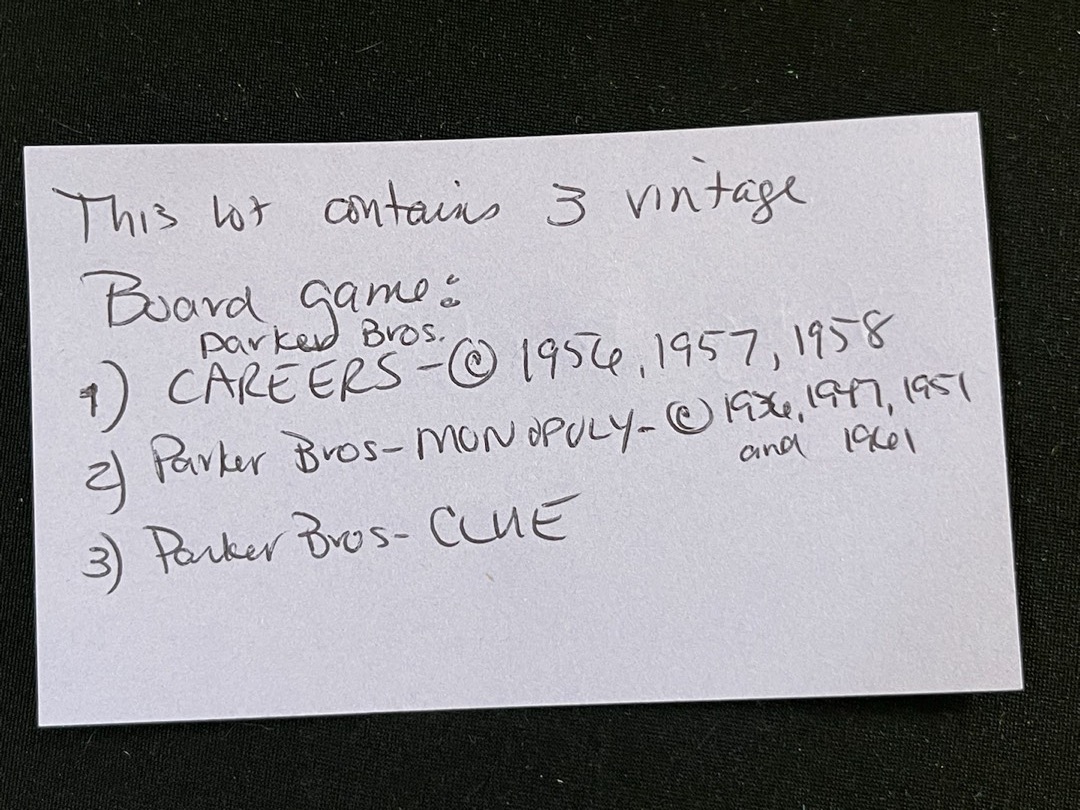 This lot contains 3 vintage
Board game:
Parker Bros.
1) CAREERS - © 1956, 1957, 1958
2) Parker Bros - MONOPOLY - © 1936, 1947, 1951
and 1961
3) Parker Bros - CLUE